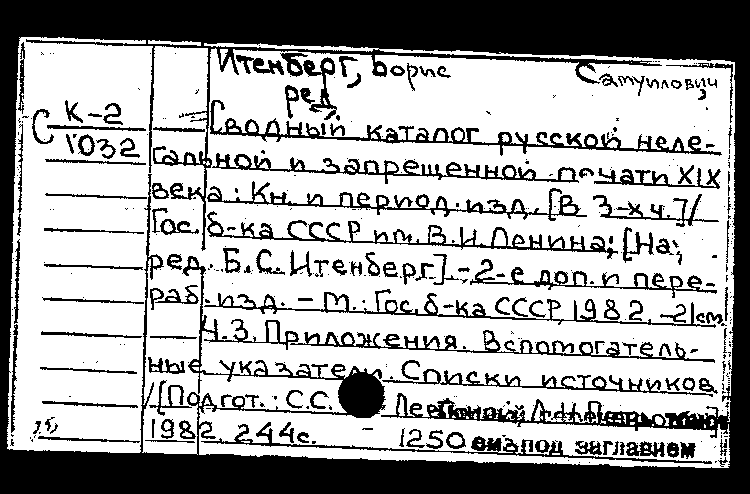 Итенберг, Борис Самуилович,
ред.
С К-2
1032
Сводный каталог русской неле-
гальной и запрещенной печати XIX
века: Кн. и период. изд. [В 3-х ч.]/
Гос. б-ка СССР им. В.И. Ленина; [На;
ред. Б.С. Итенберг]. - 2-е доп. и пере-
раб. изд. - М.: Гос. б-ка СССР, 1982. - 21 см.
Ч.3. Приложения. Вспомогатель-
ные указатели. Списки источников
/[Подгот.: С.С.
1982. 244с. 1250 под заглавием